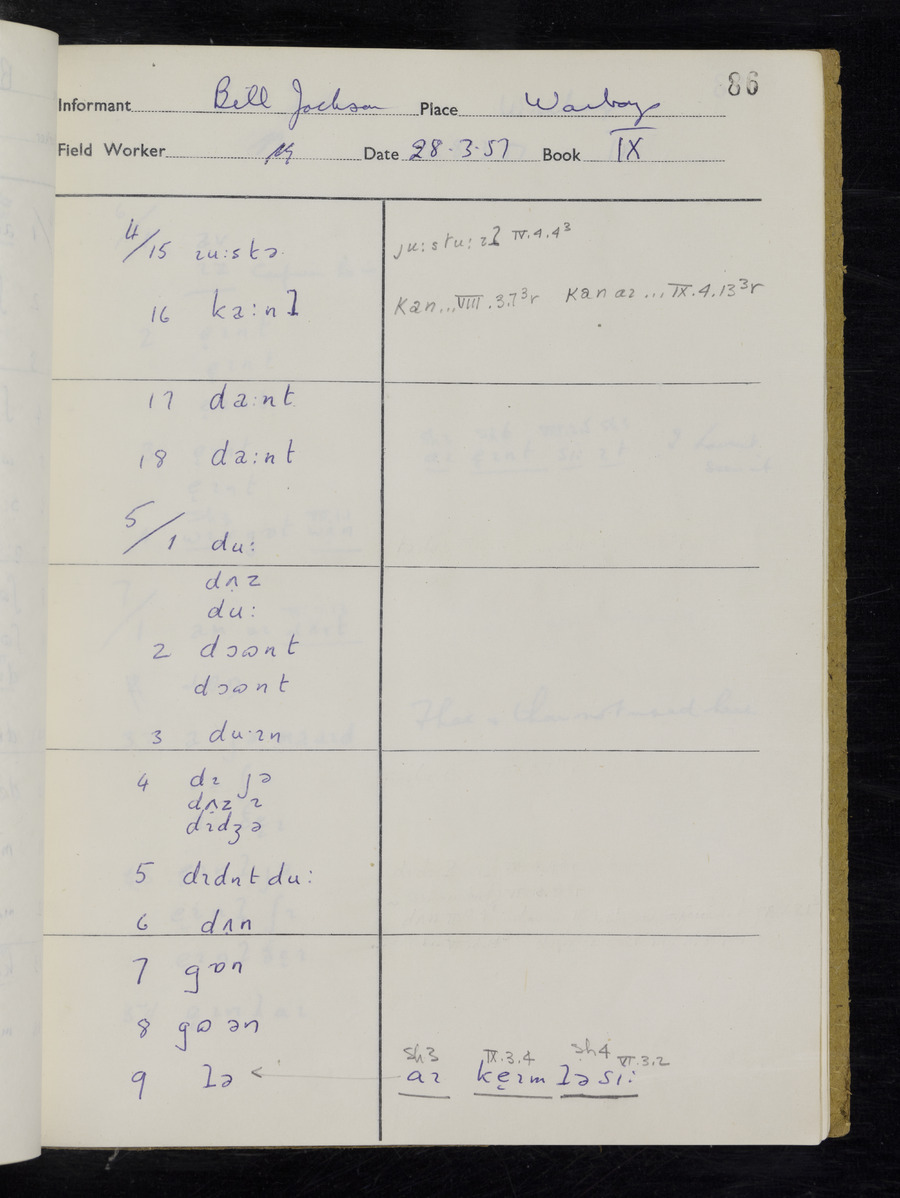 86
Informant Bill Jackson Place Warboys
Field Worker Date 28.3.57 Book IX
4/15 ɪu:stə ju:stu:ɪʔ IV.4.4³
16 ka:nʔ Kan...VIII.3.7³r Kan aɪ ...IX.4.13³r
17 da:nt
18 da:nt
5/1 du:
dʌz
du:
2 dɔɷnt
dɔɷnt
3 du·ɪn
4 dɪ jə
dʌz ɪ
dɪdʒə
5 dɪdnt du:
6 dʌn
7 gɒn
8 gɷ ən
sh3 IX.3.4 sh4 VI.3.2
9 ʔə < aɪ kẹɪm ʔə sɪ: